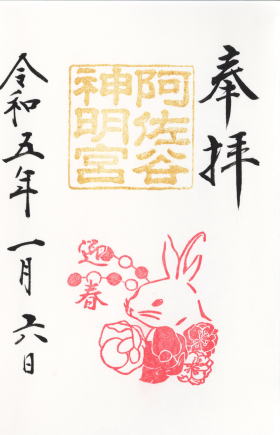 奉拝
阿佐谷
神明宮
迎
春
令和五年一月六日